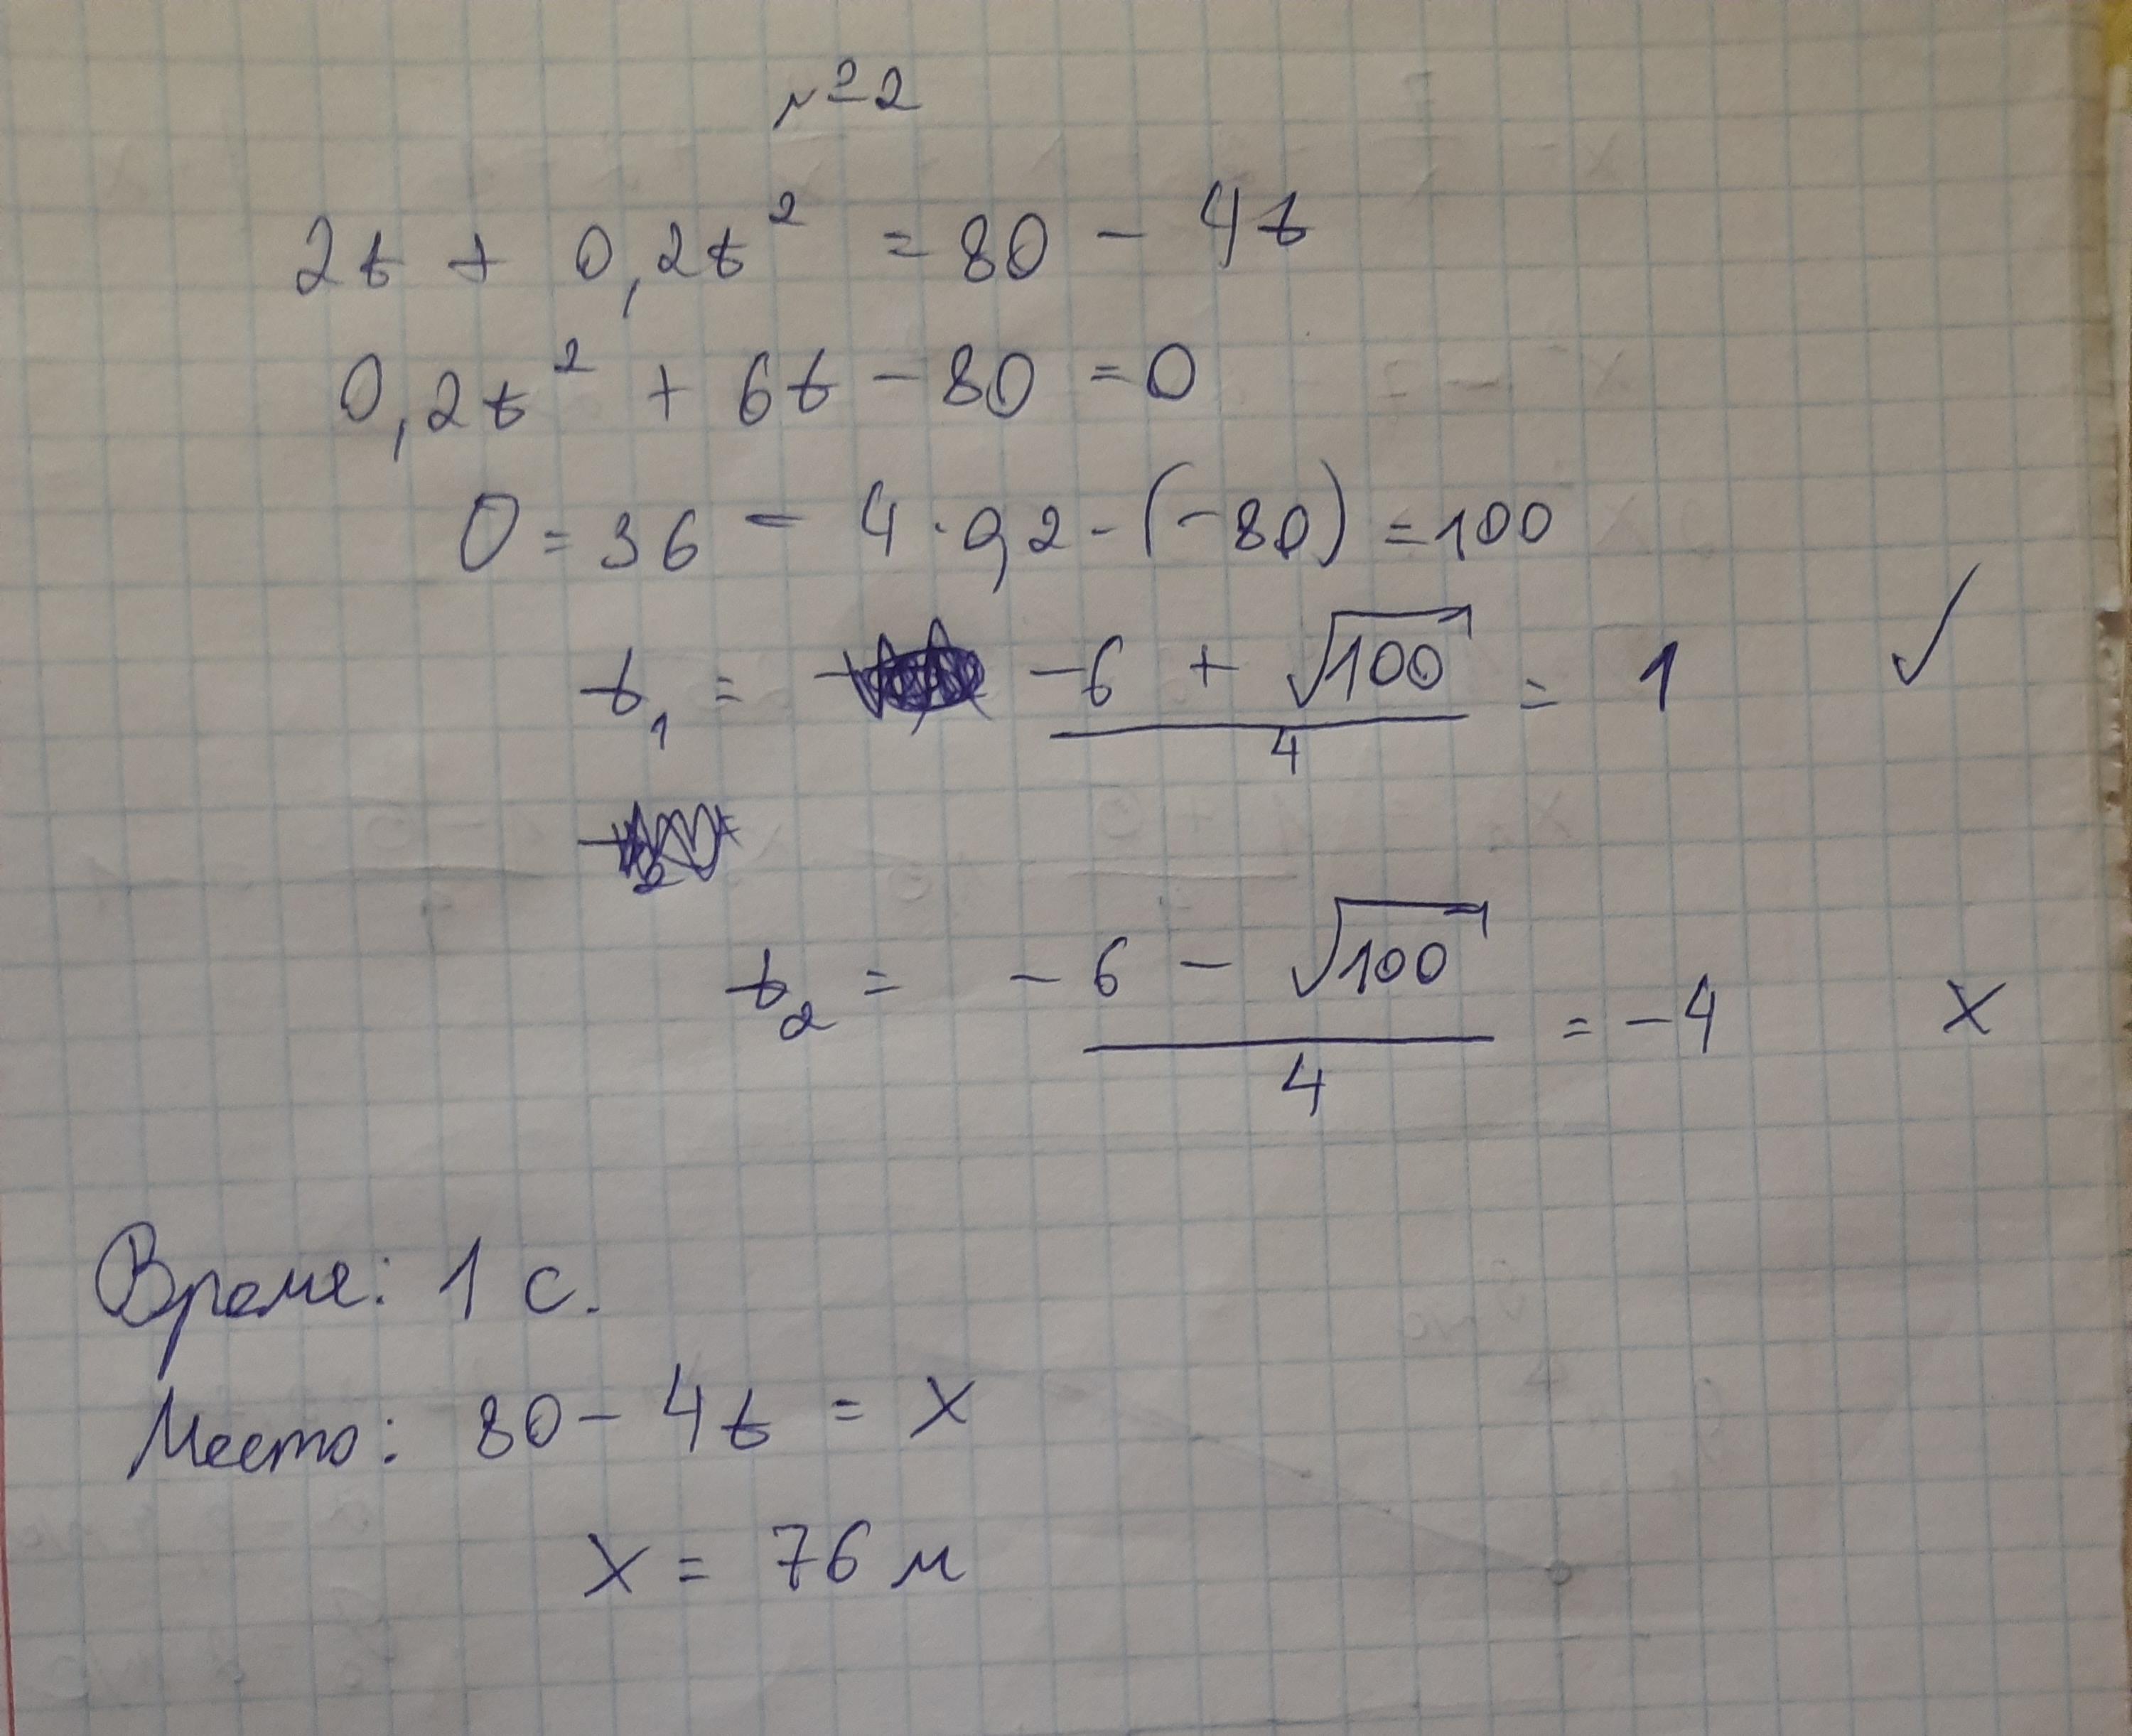 №2
2t + 0,2t² = 80 - 4t
0,2t² + 6t - 80 = 0
D = 36 - 4 · 0,2 - (-80) = 100
t₁ = -6 + √100 / 4 = 1 ✓
t₂ = -6 - √100 / 4 = -4 X
Время: 1 с.
Место: 80 - 4t = x
x = 76 м